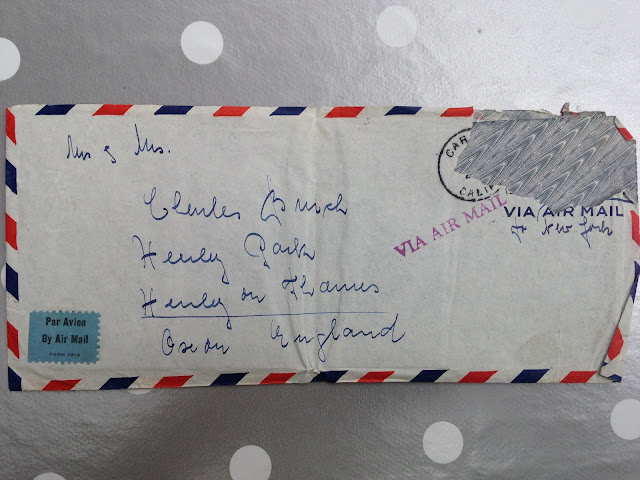 Mr & Mrs.
Charles
Henley Park
Henley on Thames
Oxon England
CAR
CALIF
VIA AIR MAIL
VIA AIR MAIL
to New York
Par Avion
By Air Mail
FORM